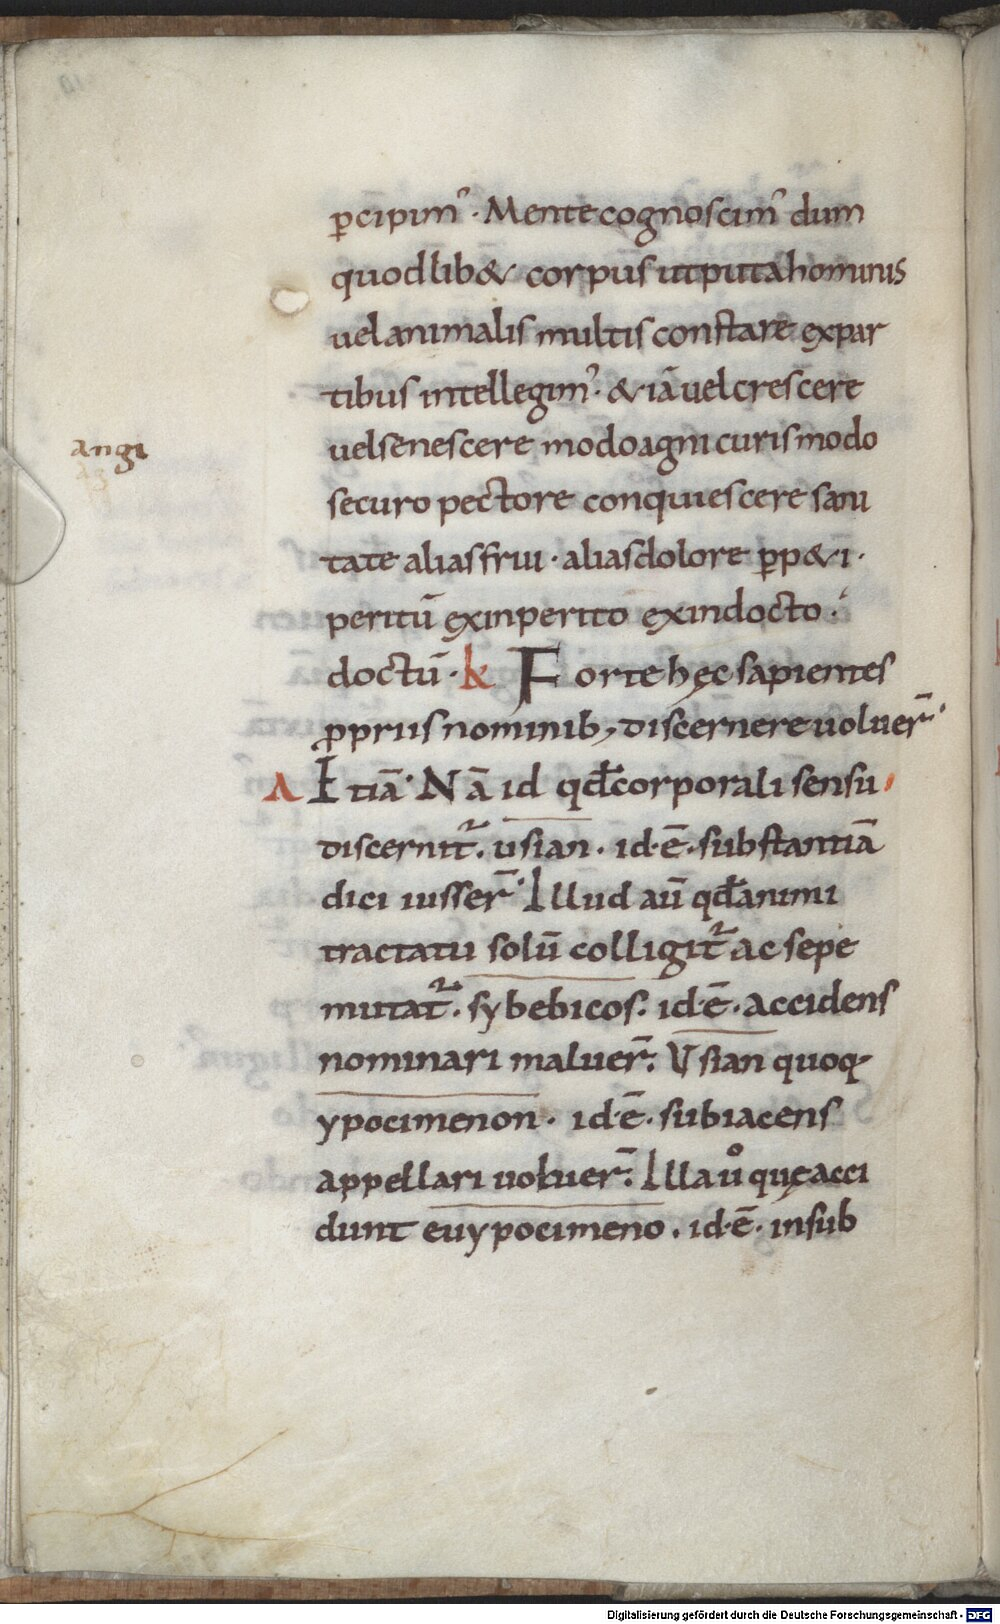 ꝑcipim᾽ · Mente cognoscim᾽ dum
quodlib& corpus utputa hominis
uel animalis multis constare expar
tibus intellegim᾽ · &iā uel crescere
angi
uel senescere modo agni curis modo
securo pectore conquiescere sani
tate alias frui · alias dolore ꝑp&i ·
peritū ex inperito ex indocto ·
doctū · k Forte hęc sapientes
ꝓpriis nominib; discernere uoluer̄ ·
Λ Etiā · Nā id qđ corporali sensu
discernit᷑ · usian · id·ē· substantiā
dici iusser̄ · Illud aū qđ animi
tractatu solū colligit᷑ ac sepe
mutat᷑ · sybebicos · id·ē· accidens
nominari maluer̄ · Vsian quoq·
ypocimenon · id·ē· subiacens
appellari uoluer̄ · Illa uº quę acci
dunt euypocimeno · id·ē· insub
Digitalisierung gefördert durch die Deutsche Forschungsgemeinschaft - DFG